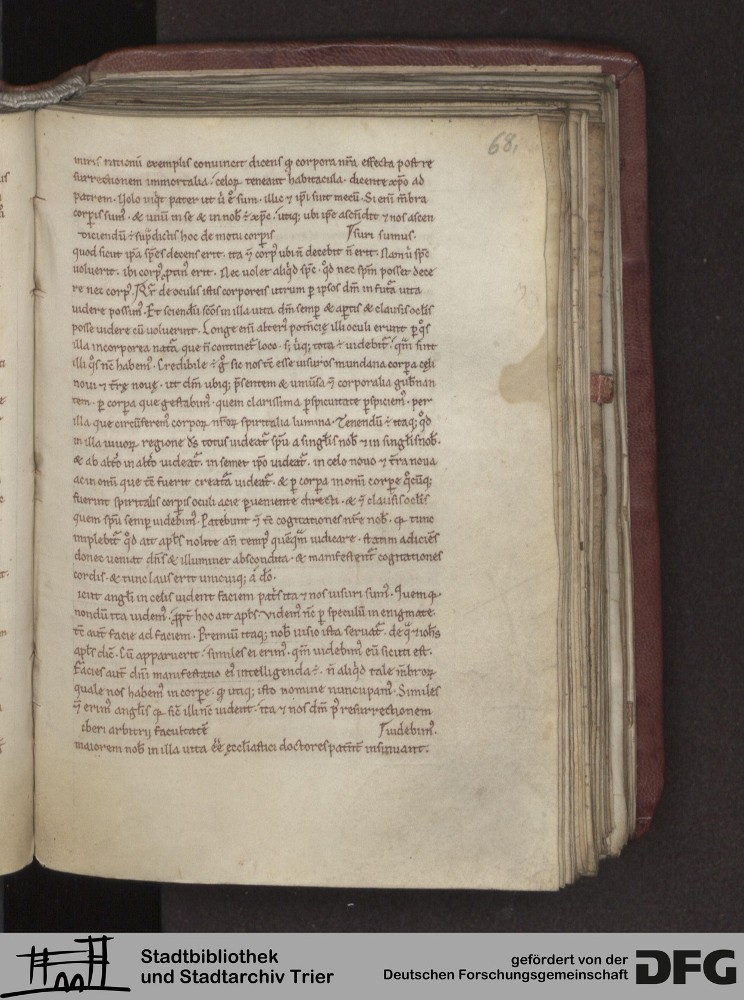 68.
miris rationū exemplis convincit dicens ꝙ corpora nr̄a effecta post re
surrectionem immortalia. celoꝝ teneant habitacula. dicente xp̄o ad
patrem. Uolo inqt pater ut ū ē sum. illic ⁊ ip̄i sint mecū. Si eni m̄bra
corporis sum. & unū in se & in nob ē xp̄c. utiq; ubi ip̄e ascendit ⁊ nos ascen
diciendū ē sup̄dictis hoc de motu corpis suri sumus.
quod sicut ip̄a sp̄es decens erit. ita ⁊ corp ubi n̄ decebit n̄ erit. Nam ū sp̄c
voluerit. ibi corp erit. Nec volet aliqd sp̄c. qd nec spm posset dece
re nec corp. de oculis istis corporeis utrum p ipsos dm̄ in futa uita
uidere possim. Et sciendū scōs in illa uita dm̄ semp & aptis & clausis oclis
posse uidere cū uoluerint. Longe eni alteri potentie illi oculi erunt p qs
illa incorporea nata que n̄ continet loco. uidebit. qm̄ sint
illi qs nc̄ habem. Credibile ē g sic nos tc̄ esse uisuros mundana corpa celi
noui ⁊ tr̄e noue. ut dm̄ ubiq; p̄sentem & uniūsa ⁊ corporalia gubnan
tem. p corpa que gestabim. quem clarissima pspicuitate pspiciem. per
illa que circūferem corpoꝝ nr̄oꝝ spiritalia lumina. Tenendū ē itaq; qd
in illa uiuoꝝ regione ds̄ totus uideat spū a singlis nob ⁊ in singlis nob.
& ab alto in alto uideat. in semet ipo uideat. in celo nouo ⁊ tr̄a noua
ac in omi que tc̄ fuerit creata uideat. & p corpa in omi corpe
fuerint spiritalis corpis oculi acie pueniente directi. & ⁊ clausis oclis
quem spū semp uidebim. Patebunt ⁊ tc̄ cogitationes nr̄e nob. ꝙ tunc
implebit qd ait apls nolite an̄ temp quēqm iudicare. statim adiciēs
donec ueniat dn̄s & illuminet abscondita. & manifestent cogitationes
cordis. & tunc laus erit unicuiq; a do.
icut angli in celis uident faciem patris ita ⁊ nos uisuri sum. Quem ꝙ
nondū ita uidem. ppt hoc ait apls. videm nc̄ p speculū in enigmate.
tc̄ aut facie ad faciem. Premiū itaq; nob uisio ista seruat. de q ⁊ iohs
apls dic. Cū apparuerit. similes ei erim. qm̄ uidebim eū sicuti est.
Facies aut dni manifestatio ei intelligenda ē. n̄ aliqd tale m̄broꝝ
quale nos habem in corpe. ꝙ utiq; isto nomine nuncupam. Similes
⁊ erim anglis ꝙ sic̄ illi nc̄ uident. ita ⁊ nos dm̄ p resurrectionem
iberi arbitrii facultatē uidebim.
maiorem nob in illa uita ēē eccl̄iastici doctores patent insinuant.
Stadtbibliothek
und Stadtarchiv Trier
gefördert von der
Deutschen Forschungsgemeinschaft
DFG